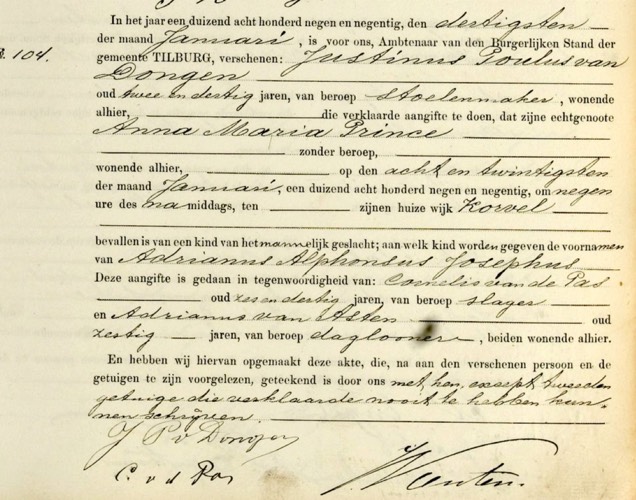 In het jaar een duizend acht honderd negen en negentig, den dertigsten
der maand Januari, is voor ons, Ambtenaar van den Burgerlijken Stand der
N. 104. gemeente TILBURG, verschenen: Justinus Poulus van
Dongen
oud twee en dertig jaren, van beroep stoelenmaker, wonende
alhier, die verklaarde aangifte te doen, dat zijne echtgenoote
Anna Maria Prince
zonder beroep,
wonende alhier, op den acht en twintigsten
der maand Januari, een duizend acht honderd negen en negentig, om negen
ure des namiddags, ten zijnen huize wijk Korvel
bevallen is van een kind van het mannelijk geslacht; aan welk kind worden gegeven de voornamen
van Adrianus Alphonsus Josephus
Deze aangifte is gedaan in tegenwoordigheid van: Cornelis van de Pas
oud zes en dertig jaren, van beroep slager
en Adrianus van Asten oud
zestig jaren, van beroep daglooner, beiden wonende alhier.
En hebben wij hiervan opgemaakt deze akte, die, na aan den verschenen persoon en de
getuigen te zijn voorgelezen, geteekend is door ons met hen, except tweeden
getuige die verklaarde nooit te hebben kun-
nen schrijven.
J P v Dongen
C. v d Pas